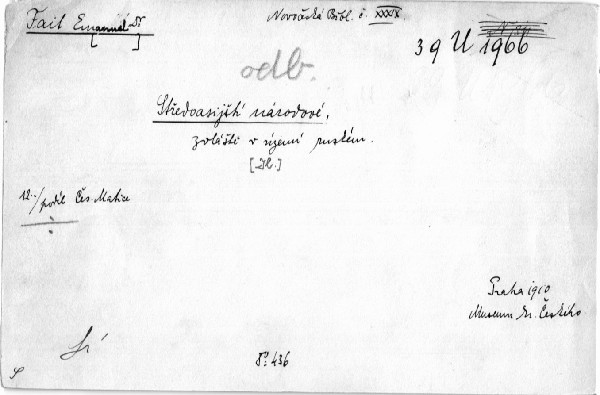 Fait Emanuel Dr
[ ]
Novočeská Bibl. č. XXXIX
39 U 1966
odb.
Středoasijští národové,
zvláště v území ruském.
[Il.]
12./ podíl Čes. Matice
Praha 1910
Museum kr. Českého
8° 436